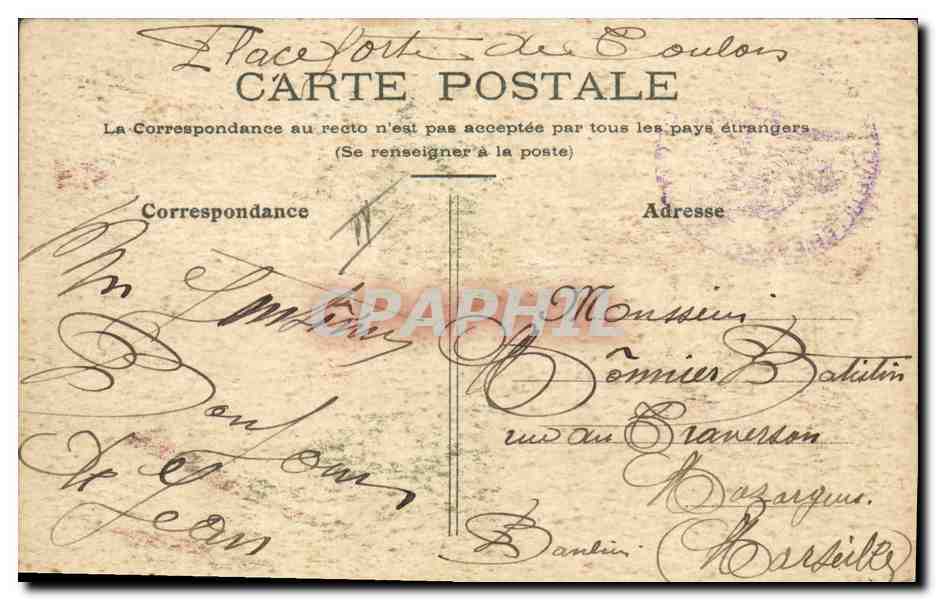 Place forte de Toulon
CARTE POSTALE
La Correspondance au recto n'est pas acceptée par tous les pays étrangers
(Se renseigner à la poste)
Correspondance
Adresse
Un
Bonjour
De
Jean
CPARAMA
Monsieur
Mônnier Batistin
rue du Traverson
Mazargues.
Banlieu
Marseille